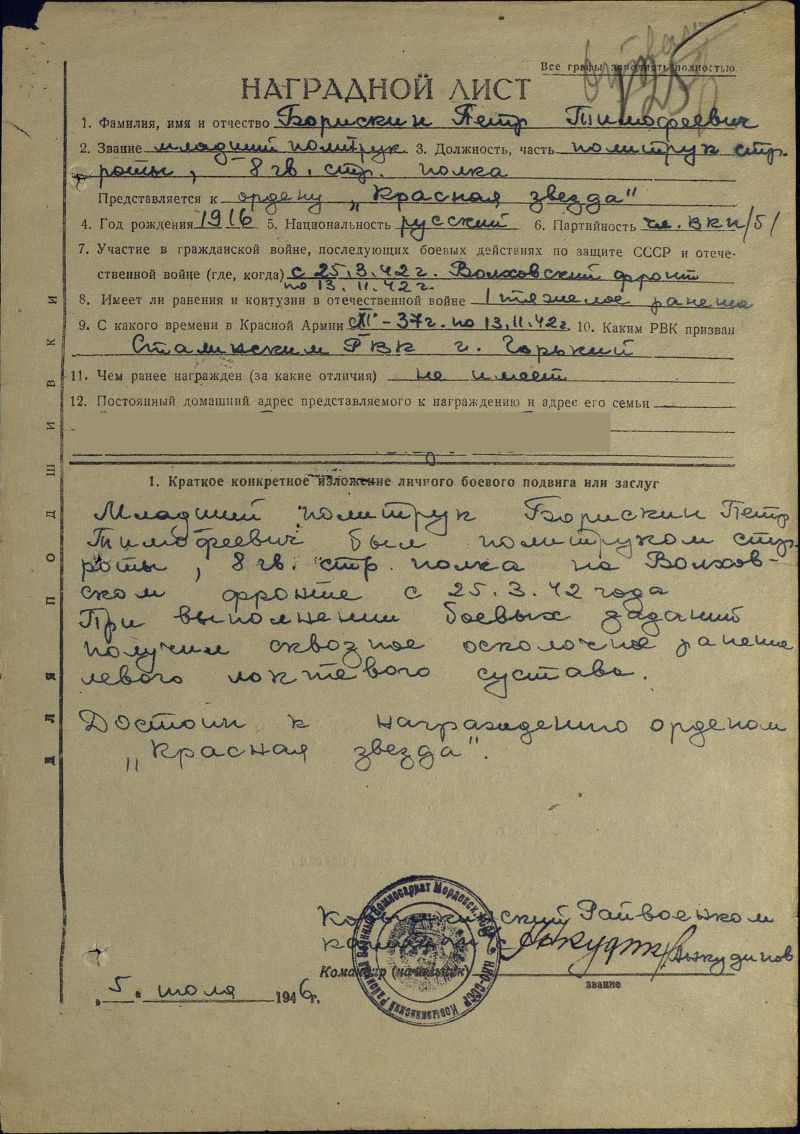 Все графы заполнять полностью
НАГРАДНОЙ ЛИСТ
1. Фамилия, имя и отчество Борискин Петр Тимофеевич
2. Звание младший политрук 3. Должность, часть политрук стр.
роты, 8 гв. стр. полка
Представляется к ордену „Красная звезда"
4. Год рождения 1916 5. Национальность русский 6. Партийность чл. ВКП/б/
7. Участие в гражданской войне, последующих боевых действиях по защите СССР и отече-
ственной войне (где, когда) с 25.3.42г. Волховский фронт
по 13.11.42г.
8. Имеет ли ранения и контузии в отечественной войне 1 тяжелое ранение
9. С какого времени в Красной Армии с XI-37г. по 13.11.42г. 10. Каким РВК призван
Сталинским РВК г. Горький
11. Чем ранее награжден (за какие отличия) не имеет
12. Постоянный домашний адрес представляемого к награждению и адрес его семьи
1. Краткое конкретное изложение личного боевого подвига или заслуг
Младший политрук Борискин Петр
Тимофеевич был политруком стр.
роты, 8 гв. стр. полка на Волхов-
ском фронте с 25.3.42 года
При выполнении боевых заданий
получил сквозное осколочное ранение
левого локтевого сустава.
Достоин к награждению орденом
„Красная звезда".
Для подшивки
Ковылкинский Райвоенком
Анкудинов
Командир (начальник)
звание
„5" июля 1946г.